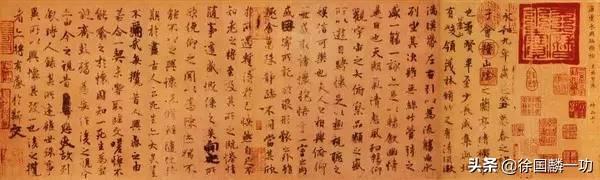 永和九年歲在癸丑暮春之初會
于會稽山陰之蘭亭脩禊事
也羣賢畢至少長咸集此地
有崇山峻領茂林脩竹又有清流激
湍暎帶左右引以為流觴曲水
列坐其次雖無絲竹管弦之
盛一觴一詠亦足以暢敘幽情
是日也天朗氣清惠風和暢仰
觀宇宙之大俯察品類之盛
所以遊目騁懷足以極視聽之
娛信可樂也夫人之相與俯仰
一世或取諸懷抱悟言一室之內
或因寄所託放浪形骸之外雖
趣舍萬殊靜躁不同當其欣
於所遇蹔得於己快然自足不
知老之將至及其所之既惓情
隨事遷感慨係之矣向之所
欣俛仰之閒以為陳迹猶不
能不以之興懷況脩短隨化終
期於盡古人云死生亦大矣豈
不痛哉每攬昔人興感之由
若合一契未嘗不臨文嗟悼不
能喻之於懷固知一死生為虛
誕齊彭殤為妄作後之視今
亦由今之視昔悲夫故列
敘時人錄其所述雖世殊事
異所以興懷其致一也後之攬
者亦將有感於斯文
头条 @徐国麟一功